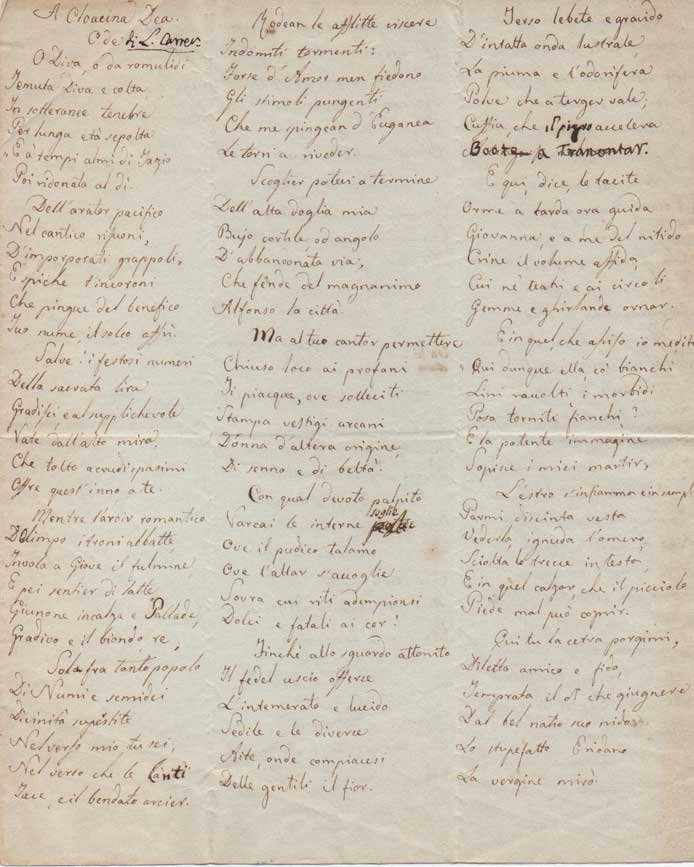 A Cloacina Dea.
Ode di L. Carrer.
O Diva, o da romulidi
Temuta Diva e colta
In sotterranee tenebre
Per lunga età sepolta
E a' tempi almi di Fazio
Poi ridonata al dì.
Dell'arator pacifico
Nel cantico risuoni,
D'imporporati grappoli,
E spiche t'incoroni
Che pingue del benefico
Tuo nume, il solco offrì.
Salve! i festosi numeri
Della sacrata lira
Gradisci, e al supplichevole
Vate dall'alto mira,
Che tolto a crudi spasimi
Offre quest'inno a te.
Mentre l'ardir romantico
D'Olimpo i troni abbatte,
Invola a Giove il fulmine,
E pei sentier di latte
Giunone incalza e Pallade,
Gradivo e il biondo re,
Sola fra tanto popolo
Di Numi e semidei
Divinità superstite
Nel verso mio tu sei,
Nel verso che le Canti
Tace, e il bendato arcier.
Rodean le afflitte viscere
Indomiti tormenti:
Forse d'Amor men fiedono
Gli stimoli pungenti
Che me spingean d'Euganea
Le torri a riveder.
Scioglier poteui a termine
Dell'alta doglia mia
Bujo cortile od angolo
D'abbandonata via,
Che fende del magnanimo
Alfonso la città.
Ma al tuo cantor permettere
Chiuso loco ai profani
Ti piacque, ove solleciti
Stampa vestigi arcani
Donna d'altera origine,
Di senno e di beltà.
Con qual devoto palpito
Varcai le interne soglie
Ove il pudico talamo
Ove l'altar s'accoglie
Sovra cui riti adempionsi
Dolci e fatali ai cor!
Finchè allo sguardo attonito
Il fedel uscio offerse
L'intemerato e lucido
Sedile e le diverse
Aite, onde compiacesi
Delle gentili il fior.
Terso lebete e gravido
D'intatta onda lustrale,
La piuma e l'odorifera
Polve che a terger vale;
Cuffia, che il pigro accelera
Boote a Tramontar.
E qui, dice, le tacite
Orme a tarda ora guida
Giovanna, e a me del nitido
Crine il volume affida,
Cui ne' teatri e ai circoli
Gemme e ghirlande ornar.
E in quel, che assiso io medito
Qui dunque ella, co' bianchi
Lini ravvolti, i morbidi
Posa torniti fianchi?
E la potente immagine
Sopisce i miei martir,
L'estro s'infiamma e in
Parmi, discinta vesta
Vederla, ignuda l'omero,
Sciolta le trecce in testa,
E in quel calzar, che il picciolo
Piede mal può coprir.
Qui tu la cetra porgimi,
Diletta amico e fido,
Temprata il dì che giugnere
Dal bel natio suo nido
Lo stupefatto Eridano
La vergine mirò.